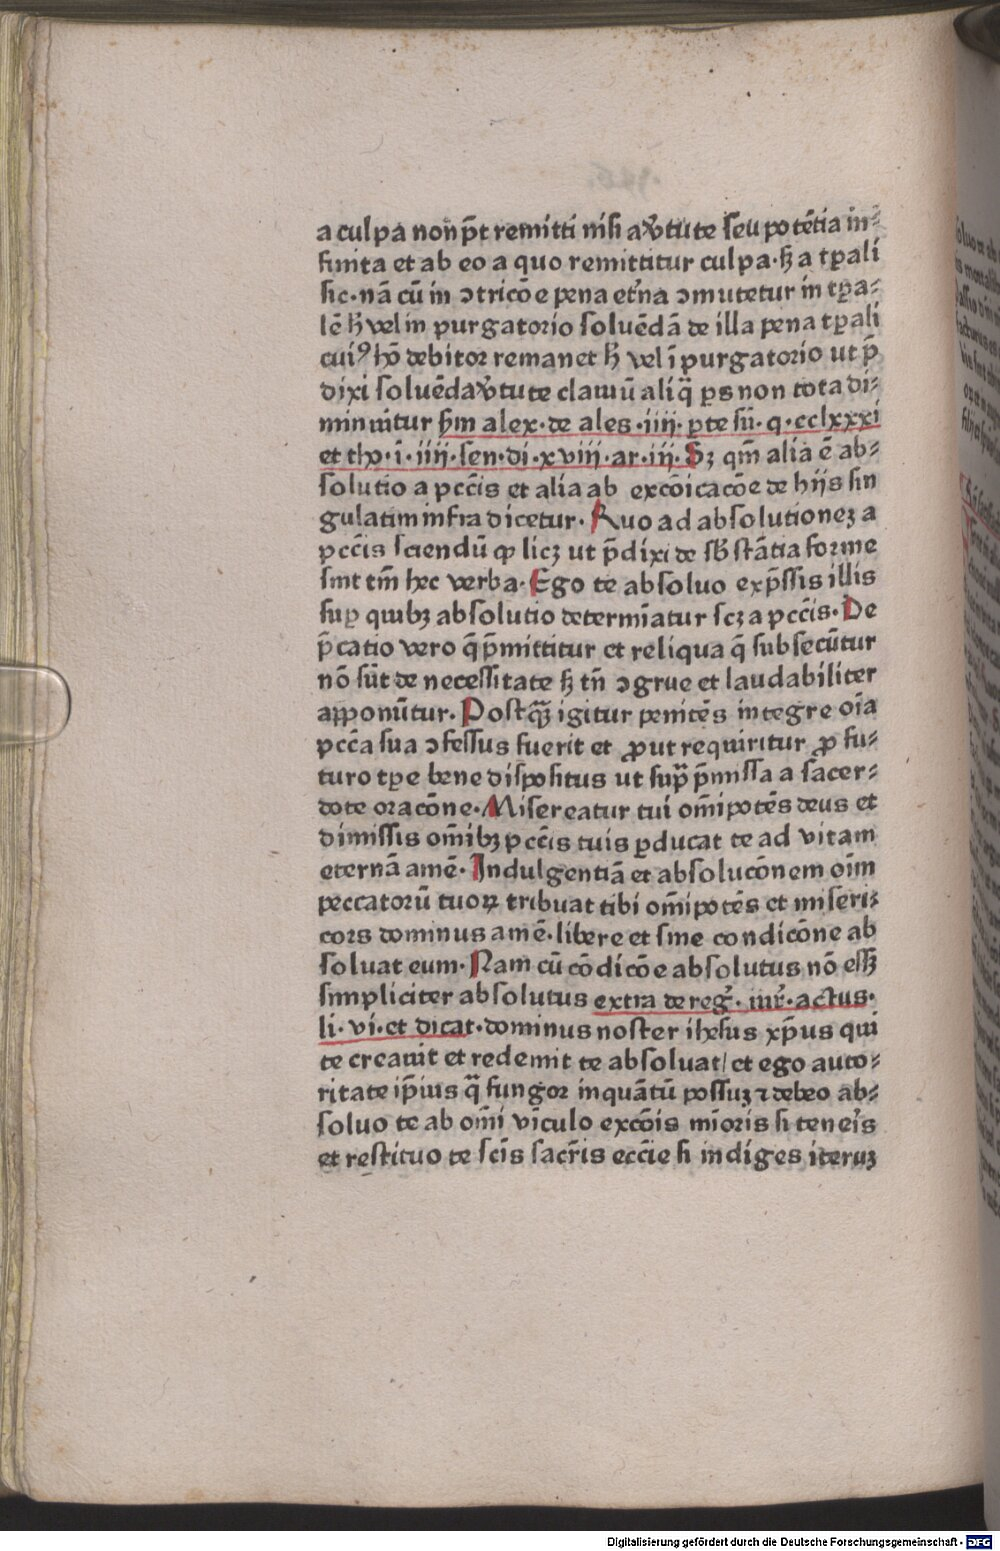 a culpa non p̄t remitti nisi a v̾tute seu potētia in⸗
finita et ab eo a quo remittitur culpa· sꝫ a tꝑali
sic· nā cū in ↄtricōe pena et̾na ↄmutetur in tꝑa⸗
lē hͥ vel in purgatorio soluēdā de illa pena tꝑali
cui⁹ hō debitor remanet hͥ vel ī purgatorio ut p̄
dixi soluēda v̾tute clauiū aliq̄ ꝑs non tota di⸗
minuitur sm̄ alex· de ales ·iiij· ꝑte sū· q· cclxxxi
et tho· ī· iiij· sen· di· xviij· ar· iij· Sꝫ qm̄ alia ē ab⸗
solutio a pccīs et alia ab excōicacōe de hijs sin
gulatim infra dicetur· Quo ad absolutioneꝫ a
pccīs sciendū ꝙ licꝫ ut p̄dixi de sb̄stātia forme
sint tm̄ hec verba· Ego te absoluo exp̄ssis illis
suꝑ quibꝫ absolutio determīatur scꝫ a pccīs· De
p̄catio vero q̄ p̄mittitur et reliqua q̄ subsecūtur
nō sūt de necessitate sꝫ tn̄ ↄgrue et laudabiliter
apponūtur· Postꝙ̄ igitur penitēs integre oīa
pccā sua ↄfessus fuerit et ꝓut requiritur ꝓ fu⸗
turo tꝑe bene dispositus ut supͣ p̄missa a sacer⸗
dote oracōne· Misereatur tui om̄ipotēs deus et
dimissis om̄ibꝫ pccīs tuis ꝑducat te ad vitam
eternā amē· Indulgentiā et absolucōnem oīm
peccatorū tuoꝝ tribuat tibi om̄ipotēs et miseri⸗
cors dominus amē· libere et sine condicōne ab
soluat eum· Nam cū cōdicōe absolutus nō essꝫ
simpliciter absolutus extra de reg̾· iur̾· actus·
li· vi· et dicat· dominus noster ihesus xp̄us qui
te creauit et redemit te absoluat/ et ego auto⸗
ritate ip̄ius qͣ fungor inquātū possuꝫ ⁊ debeo ab⸗
soluo te ab om̄i vīculo excōis mīoris si tener̾s
et restituo te scīs sacr̄is eccīe si indiges iteruꝫ
Digitalisierung gefördert durch die Deutsche Forschungsgemeinschaft · DFG